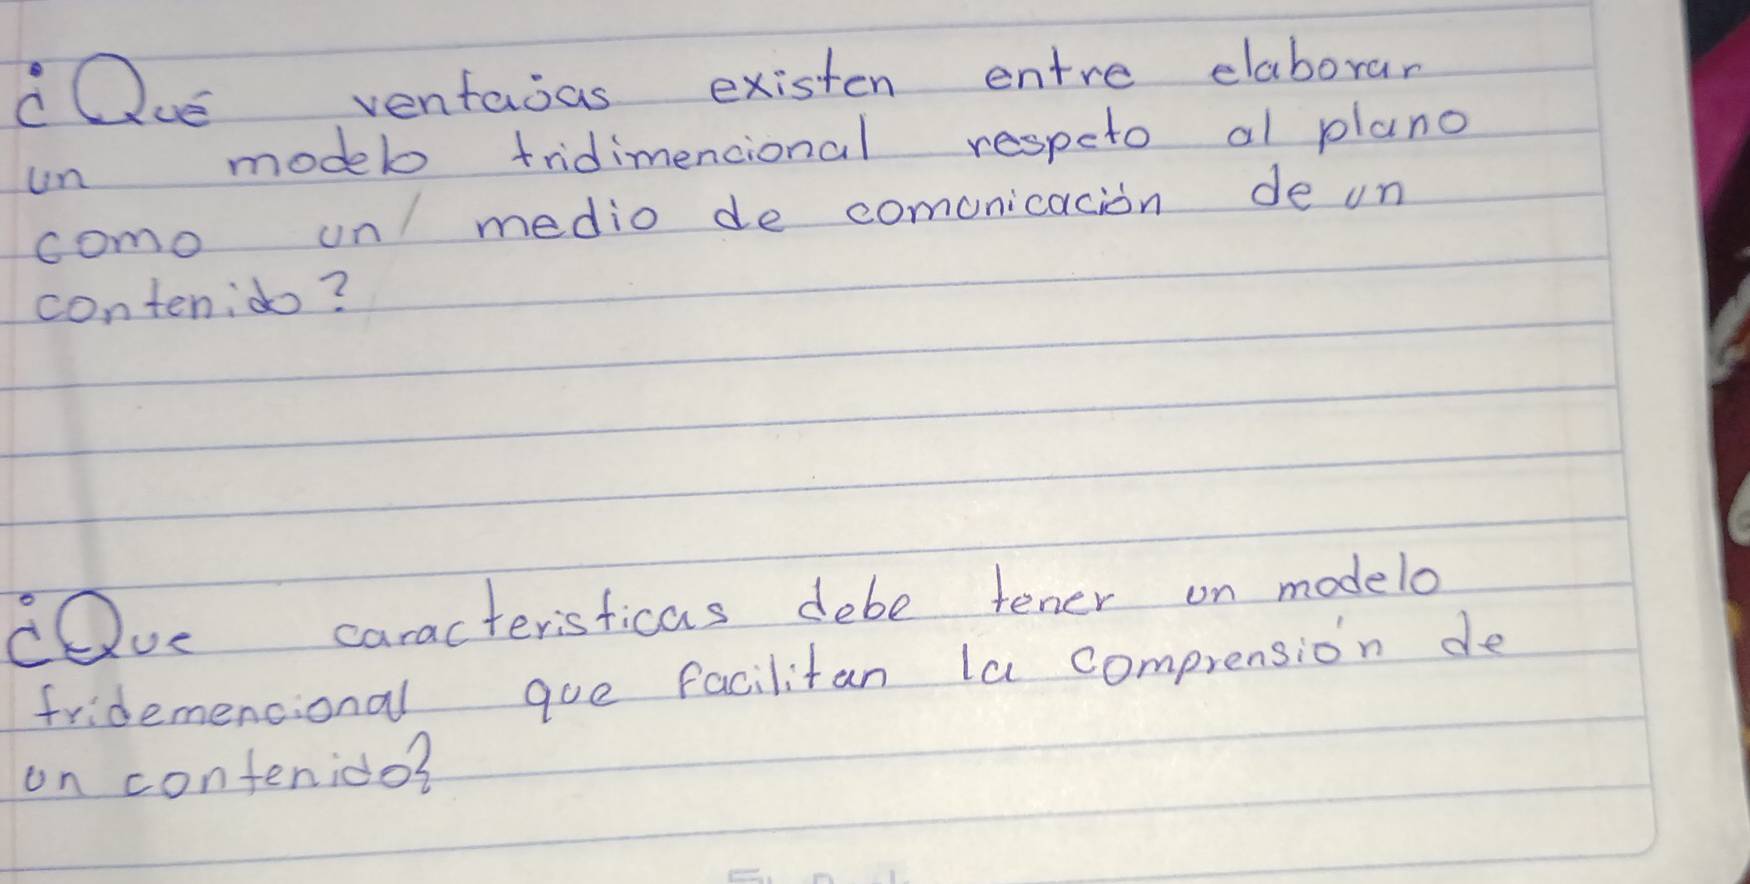 ¿Qué ventajas existen entre elaborar
un modelo tridimencional respeto al plano
como un medio de comunicación de un
contenido?
¿Que caracteristicas debe tener un modelo
tridemencional que facilitan la comprensión de
un contenido?